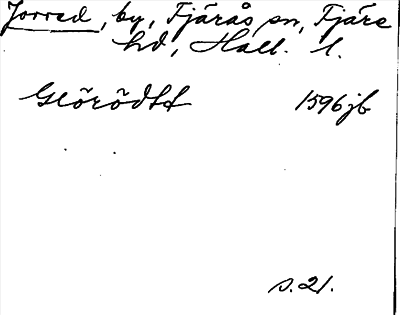 Jorred, by, Fjärås sn, Fjäre
hd, Hall. l.
Glörödtt 1596 jb
s. 21.